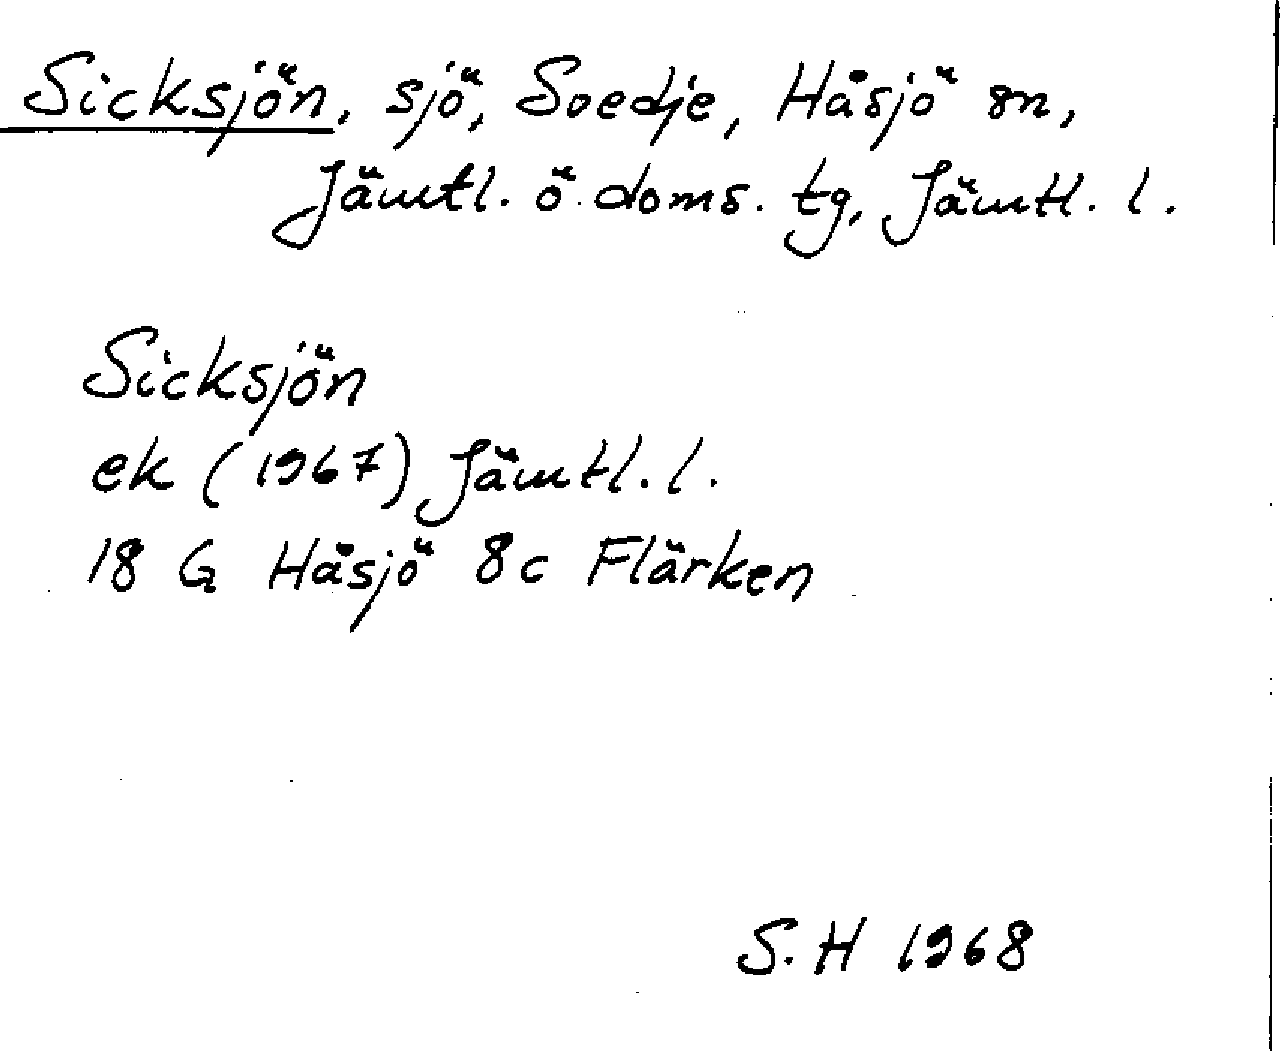 Sicksjön, sjö, Soedje, Håsjö sn,
Jämtl. ö. doms. tg, Jämtl. l.
Sicksjön
ek (1967) Jämtl. l.
18 G Håsjö 8c Flärken
S. H 1968